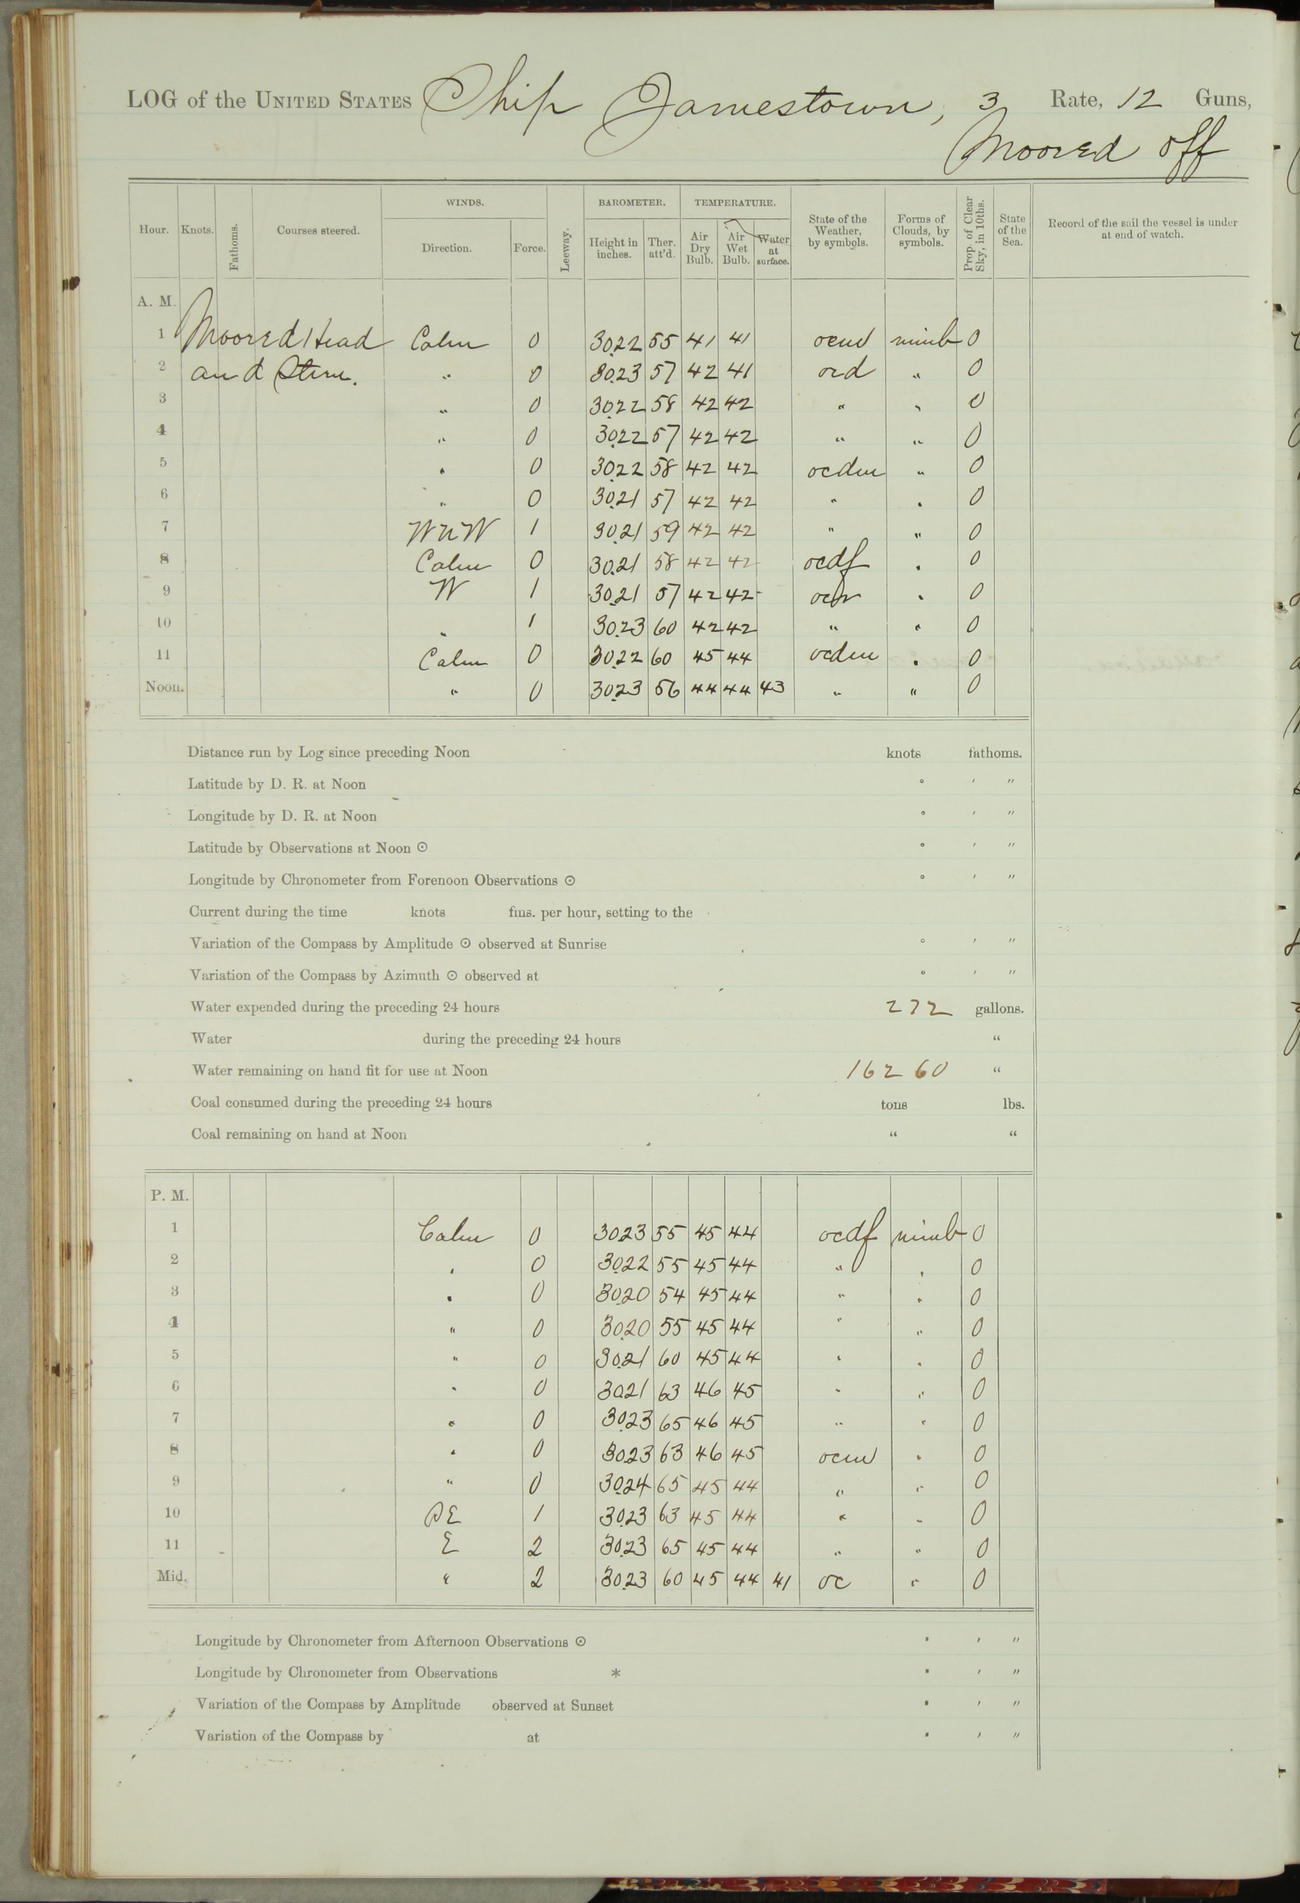 LOG of the UNITED STATES Ship Jamestown, 3 Rate, 12 Guns,
Moored off
Hour. Knots. Fathoms. Courses steered. WINDS. Direction. Force. Leeway. BAROMETER. Height in inches. Ther. att'd. TEMPERATURE. Air Dry Bulb. Air Wet Bulb. Water at surface. State of the Weather, by symbols. Forms of Clouds, by symbols. Prop. of Clear Sky, in 10ths. State of the Sea. Record of the sail the vessel is under at end of watch.
A. M.
1 Moored Head Calm 0 30.22 55 41 41 ocm nimb 0
2 and Stern. " 0 30.23 57 42 41 ocd " 0
3 " 0 30.22 58 42 42 " " 0
4 " 0 30.22 57 42 42 " " 0
5 " 0 30.22 58 42 42 ocdm " 0
6 " 0 30.21 57 42 42 " " 0
7 WNW 1 30.21 59 42 42 " " 0
8 Calm 0 30.21 58 42 42 ocdf " 0
9 W 1 30.21 57 42 42 " 0
10 " 1 30.23 60 42 42 " " 0
11 Calm 0 30.22 60 45 44 ocdm " 0
Noon. " 0 30.23 56 44 44 43 " " 0
Distance run by Log since preceding Noon knots fathoms.
Latitude by D. R. at Noon ° ' "
Longitude by D. R. at Noon ° ' "
Latitude by Observations at Noon ⊙ ° ' "
Longitude by Chronometer from Forenoon Observations ⊙ ° ' "
Current during the time knots fms. per hour, setting to the
Variation of the Compass by Amplitude ⊙ observed at Sunrise ° ' "
Variation of the Compass by Azimuth ⊙ observed at ° ' "
Water expended during the preceding 24 hours 272 gallons.
Water during the preceding 24 hours "
Water remaining on hand fit for use at Noon 16260 "
Coal consumed during the preceding 24 hours tons lbs.
Coal remaining on hand at Noon " "
P. M.
1 Calm 0 30.23 55 45 44 ocdf nimb 0
2 " 0 30.22 55 45 44 " " 0
3 " 0 30.20 54 45 44 " " 0
4 " 0 30.20 55 45 44 " " 0
5 " 0 30.21 60 45 44 " " 0
6 " 0 30.21 63 46 45 " " 0
7 " 0 30.23 65 46 45 " " 0
8 " 0 30.23 63 46 45 ocm " 0
9 " 0 30.24 65 45 44 " " 0
10 SE 1 30.23 63 45 44 " " 0
11 E 2 30.23 65 45 44 " " 0
Mid. " 2 30.23 60 45 44 41 oc " 0
Longitude by Chronometer from Afternoon Observations ⊙ ° ' "
Longitude by Chronometer from Observations * ° ' "
Variation of the Compass by Amplitude observed at Sunset ° ' "
Variation of the Compass by at ° ' "